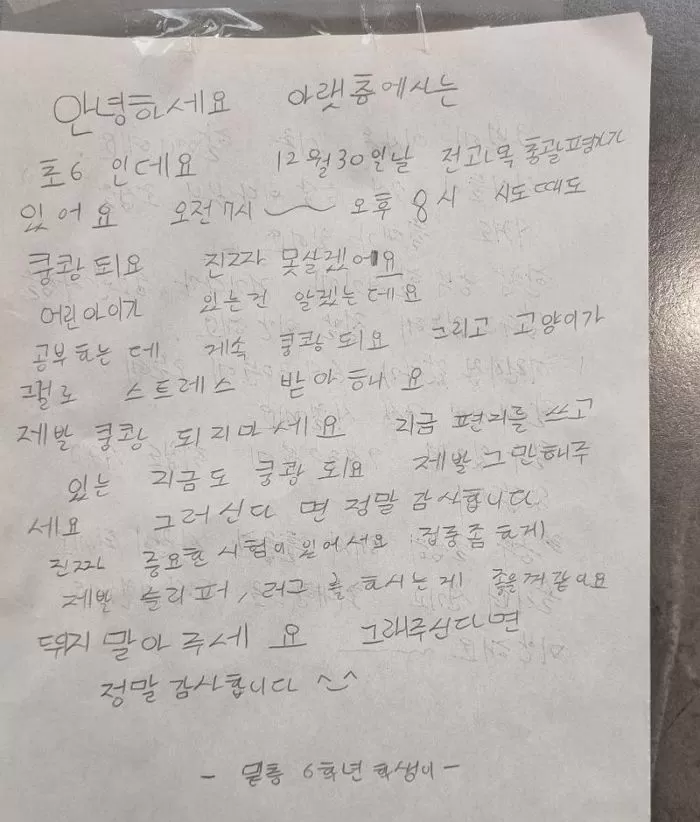 안녕하세요 아랫층에사는
초6 인데요 12월30일날 전과목 총괄평가가
있어요 오전7시 ~ 오후 8시 시도때도
쿵쾅 되요 진짜 못살겠어요
어린아이가 있는건 알겠는데요
공부하는데 계속 쿵쾅 되요 그리고 고양이가
그걸로 스트레스 받아 해요
제발 쿵쾅 되지마세요 지금 편지를 쓰고
있는 지금도 쿵쾅 되요 제발 그만해주
세요 그러신다 면 정말 감사합니다
진짜 중요한 시험이 있어서요 집중좀하게
제발 슬리퍼, 러그 를 하시는게 좋을께같아요
뛰지 말아 주세 요 그래주신다면
정말 감사합니다 ^_^
- 밑층 6학년 학생이 -